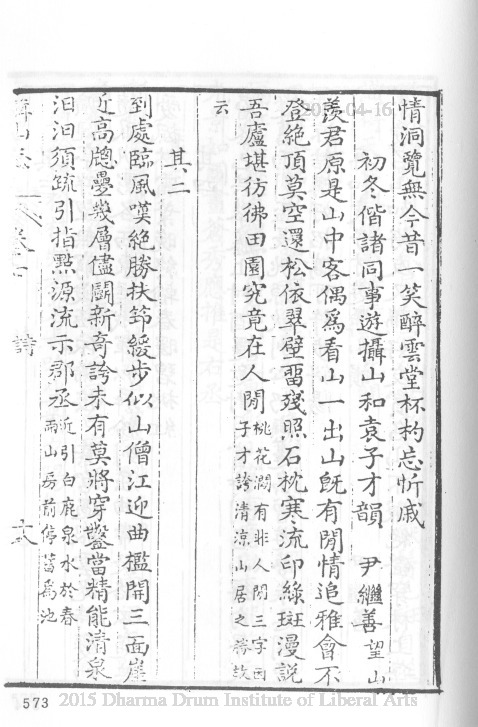 情洞覽無今昔一笑醉雲堂杯杓忘忻戚
初冬偕諸同事遊攝山和袁子才韻　尹繼善望山
羨君原是山中客偶爲看山一出山旣有閒情追雅會不
登絶頂莫空還松依翠壁畱殘照石枕寒流印綠斑漫說
吾廬堪彷彿田園究竟在人閒桃花澗有非人閒三字因子才誇清凉山居之勝故
云
其二
到處臨風嘆絶勝扶笻緩步似山僧江迎曲檻開三面崖
近高牕疊幾層儘鬭新奇誇未有莫將穿鑿當精能清泉
汩汩須疏引指㸃源流示郡丞近引白鹿泉水於春雨山房前停蓄爲池
詩
573
2015 Dharma Drum Institute of Liberal Arts